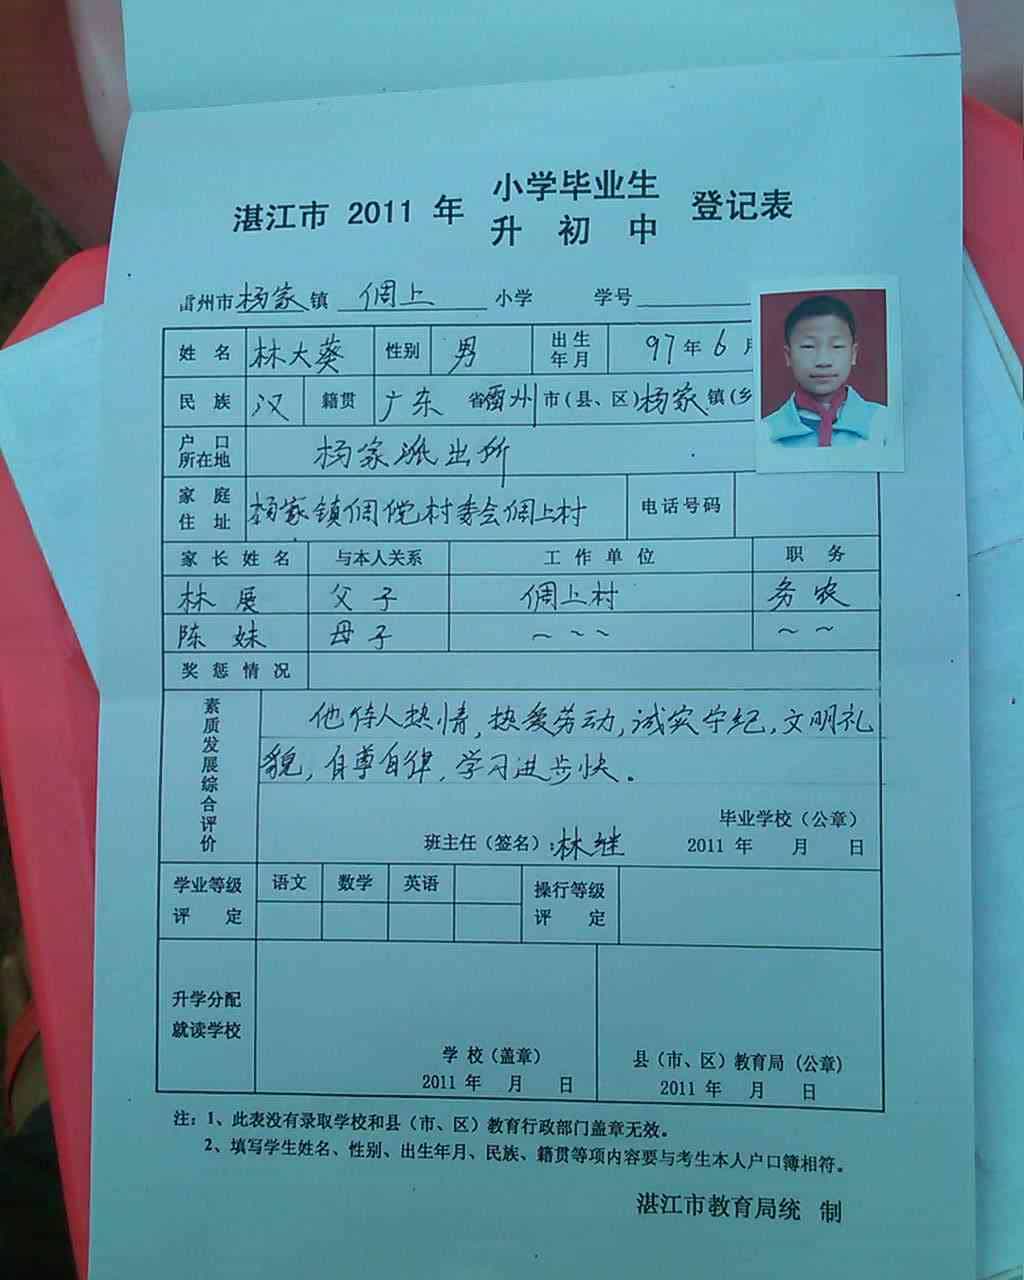 湛江市 2011 年 小学毕业生 登记表
升 初 中
雷州市杨家镇 倜上 小学 学号
姓 名 林大葵 性别 男 出生年月 97年6月
民 族 汉 籍贯 广东 省雷州 市(县、区)杨家镇(乡
户口所在地 杨家派出所
家庭住址 杨家镇倜傥村委会倜上村 电话号码
家长姓名 与本人关系 工作单位 职务
林展 父子 倜上村 务农
陈妹 母子 ~ ~ ~ ~ ~
奖惩情况
素质发展综合评价
他待人热情,热爱劳动,诚实守纪,文明礼
貌,自尊自律,学习进步快。
毕业学校(公章)
班主任(签名):林继 2011 年 月 日
学业等级评定 语文 数学 英语 操行等级评定
升学分配
就读学校
学 校(盖章) 县(市、区)教育局(公章)
2011 年 月 日 2011 年 月 日
注:1、此表没有录取学校和县(市、区)教育行政部门盖章无效。
2、填写学生姓名、性别、出生年月、民族、籍贯等项内容要与考生本人户口簿相符。
湛江市教育局统 制